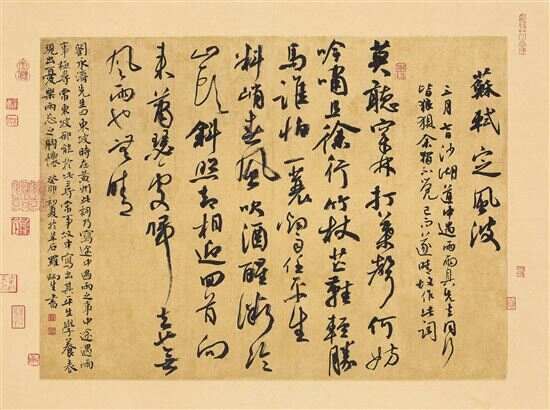 蘇軾定風波
三月七日沙湖道中遇雨雨具先去同行
皆狼狽余獨不覺已而遂晴故作此詞
莫聽穿林打葉聲何妨
吟嘯且徐行竹杖芒鞵輕勝
馬誰怕一蓑烟雨任平生
料峭春風吹酒醒微冷
山頭斜照却相迎回首向
來蕭瑟處歸去也無
風雨也無晴
劉永濟先生曰東坡時在黃州此詞乃寫途中遇雨之事中途遇雨
事極尋常東坡卻能於此等尋常事故中寫出其平生學養表
現出憂樂兩忘之胸懷 癸卯初夏於石羅生書